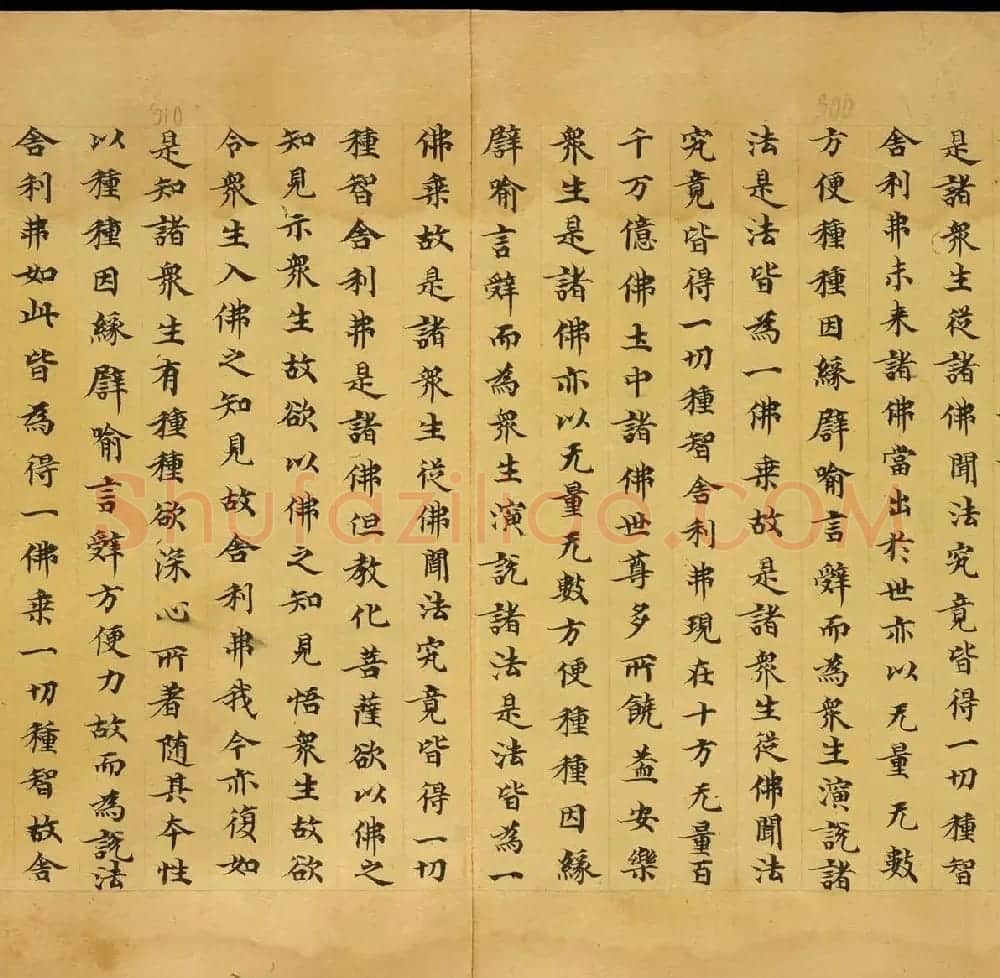 是諸衆生従諸佛聞法究竟皆得一切種智
舎利弗未来諸佛當出於世亦以无量无數
方便種種因縁譬喻言辝而為衆生演說諸
法是法皆為一佛乗故是諸衆生従佛聞法
究竟皆得一切種智舎利弗現在十方无量百
千万億佛土中諸佛世尊多所饒益安樂
衆生是諸佛亦以无量无數方便種種因縁
譬喻言辝而為衆生演說諸法是法皆為一
佛乗故是諸衆生従佛聞法究竟皆得一切
種智舎利弗是諸佛但教化菩薩欲以佛之
知見示衆生故欲以佛之知見悟衆生故欲
令衆生入佛之知見故舎利弗我今亦復如
是知諸衆生有種種欲深心所著随其本性
以種種因縁譬喻言辝方便力故而為說法
舎利弗如此皆為得一佛乗一切種智故舎
500
510
Shufaziliao.COM